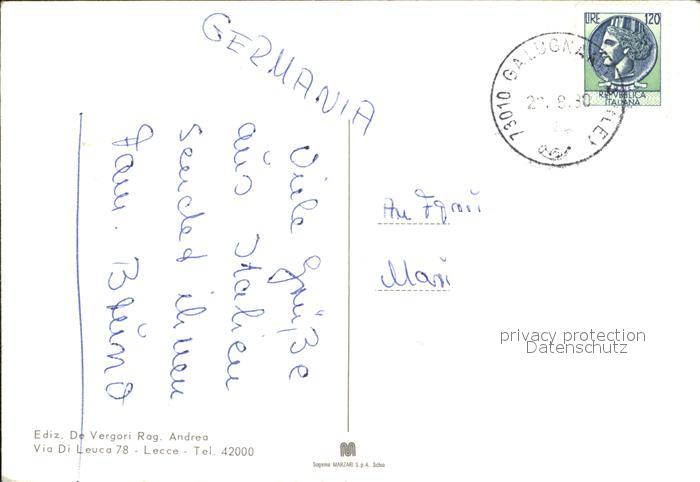 GERMANIA
Viele Grüße
aus Italien
sended ihnen
Fam. Bruno
LIRE 120
REPVBBLICA
ITALIANA
73010 GALUGNANO (LE)
An Frau
Mari
privacy protection
Datenschutz
Ediz. De Vergori Rag. Andrea
Via Di Leuca 78 - Lecce - Tel. 42000
Sagema MARZARI S.p.A. Schio